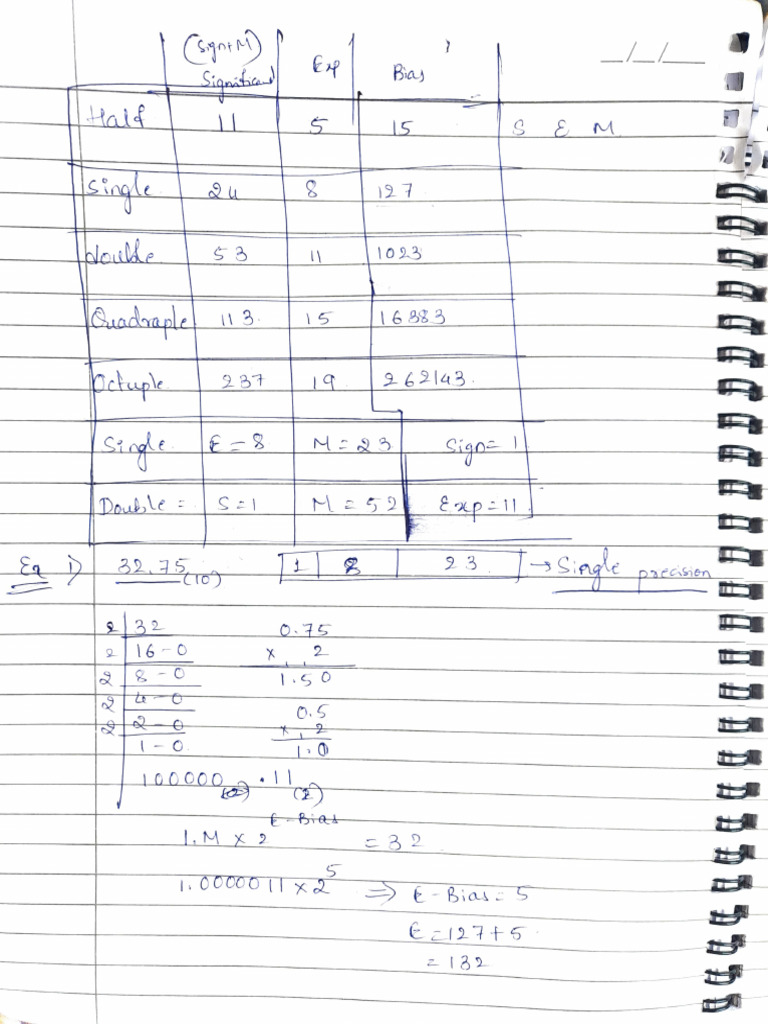 _/_/_
(Sign+M)
Significand Exp Bias
Half 11 5 15 S E M
Single 24 8 127
double 53 11 1023
Quadraple 113 15 16383
Octuple 237 19 262143
Single E=8 M=23 Sign=1
Double = S=1 M=52 Exp=11
Eg 1) 32.75(10) 1 8 23 → Single precision
2 32 0.75
2 16-0 × 2
2 8-0 1.50
2 4-0 0.5
2 2-0 × 2
1-0 1.0
100000(2) .11(2)
1.M × 2^E-Bias = 32
1.0000011 × 2^5 ⇒ E-Bias = 5
E = 127+5
= 132